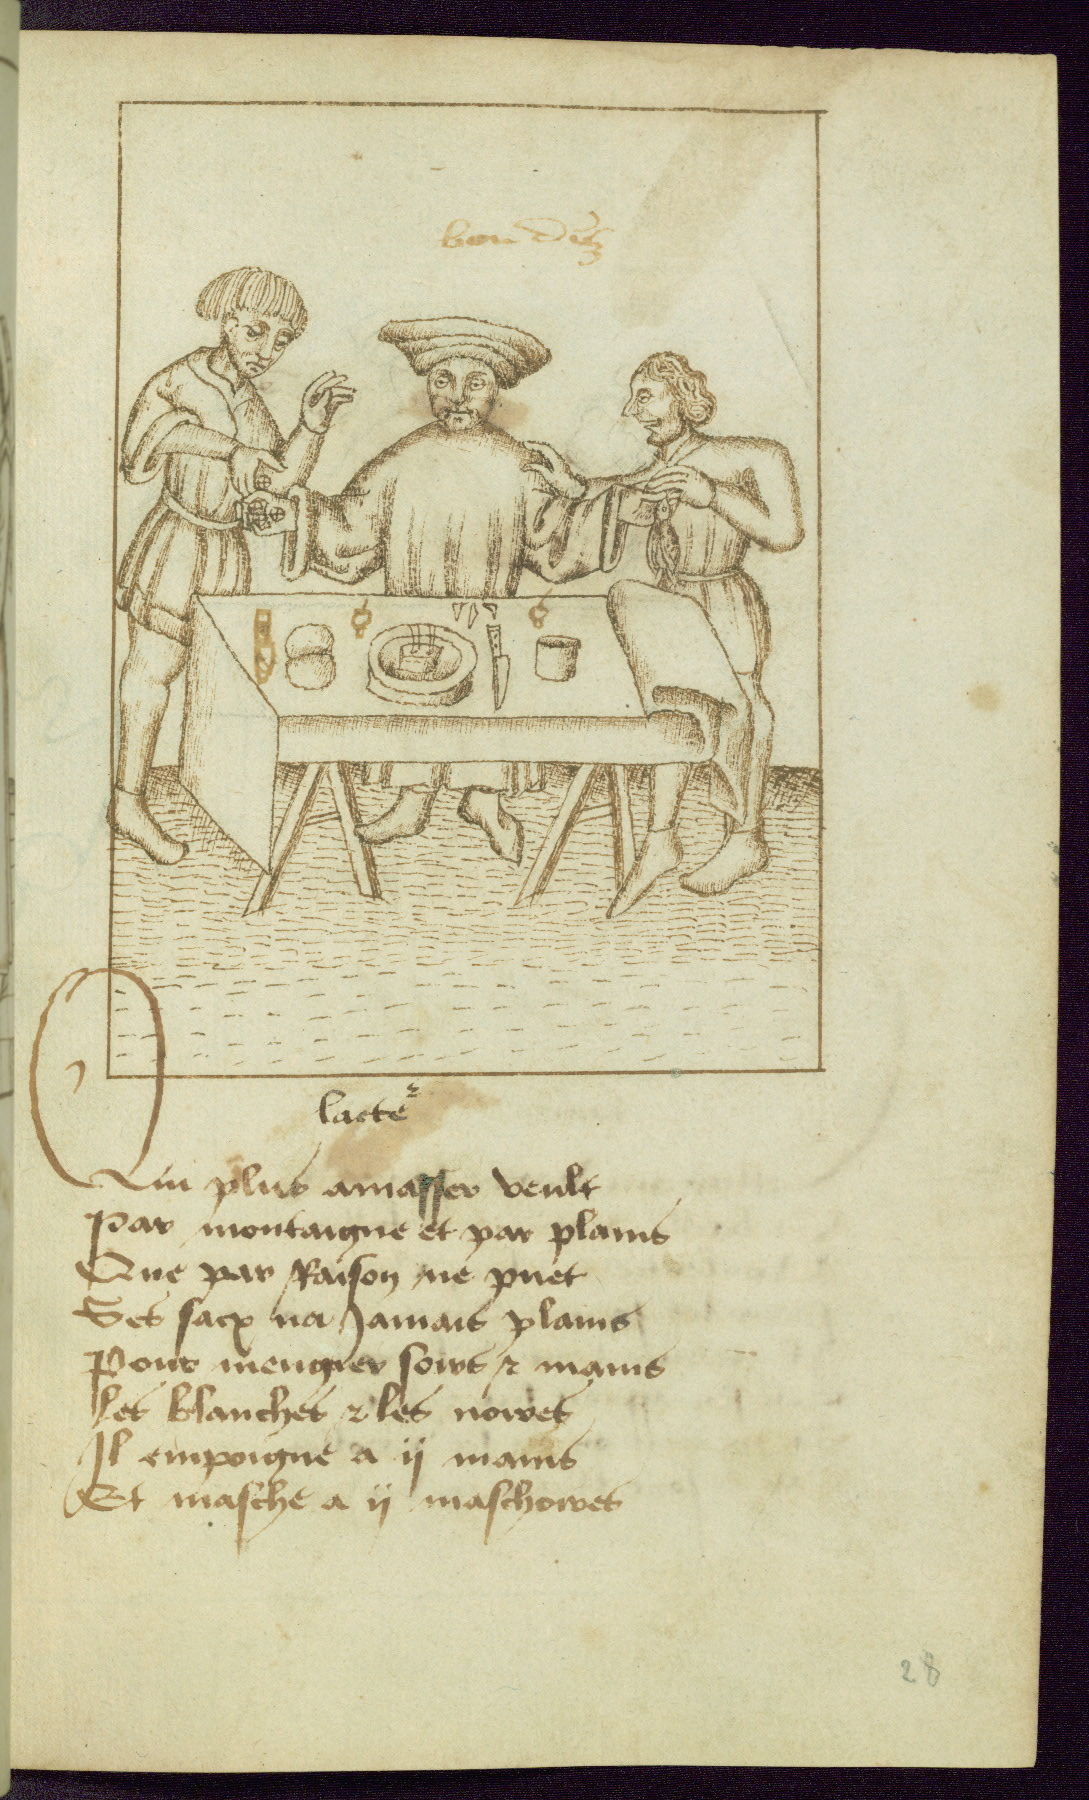 lacte²
Qui plus amasser veult
Par montaigne et par plains
Que par Raison ne puet
Ses sacz na Jamais plains
Pour mengier soirs ⁊ mains
Les blanches ⁊ les noires
Il empoigne a ij mains
Et masche a ij maschoires
28